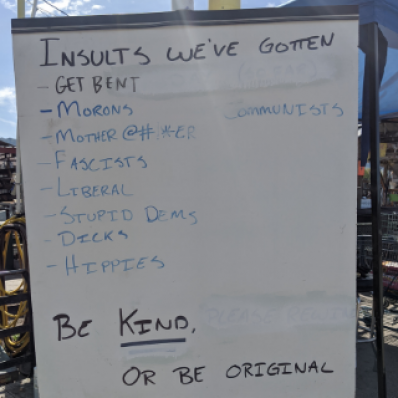 INSULTS WE'VE GOTTEN
- GET BENT
- MORONS
COMMUNISTS
- MOTHER@#!*ER
- FASCISTS
- LIBERAL
- STUPID DEMS
- DICKS
- HIPPIES
BE KIND,
OR BE ORIGINAL